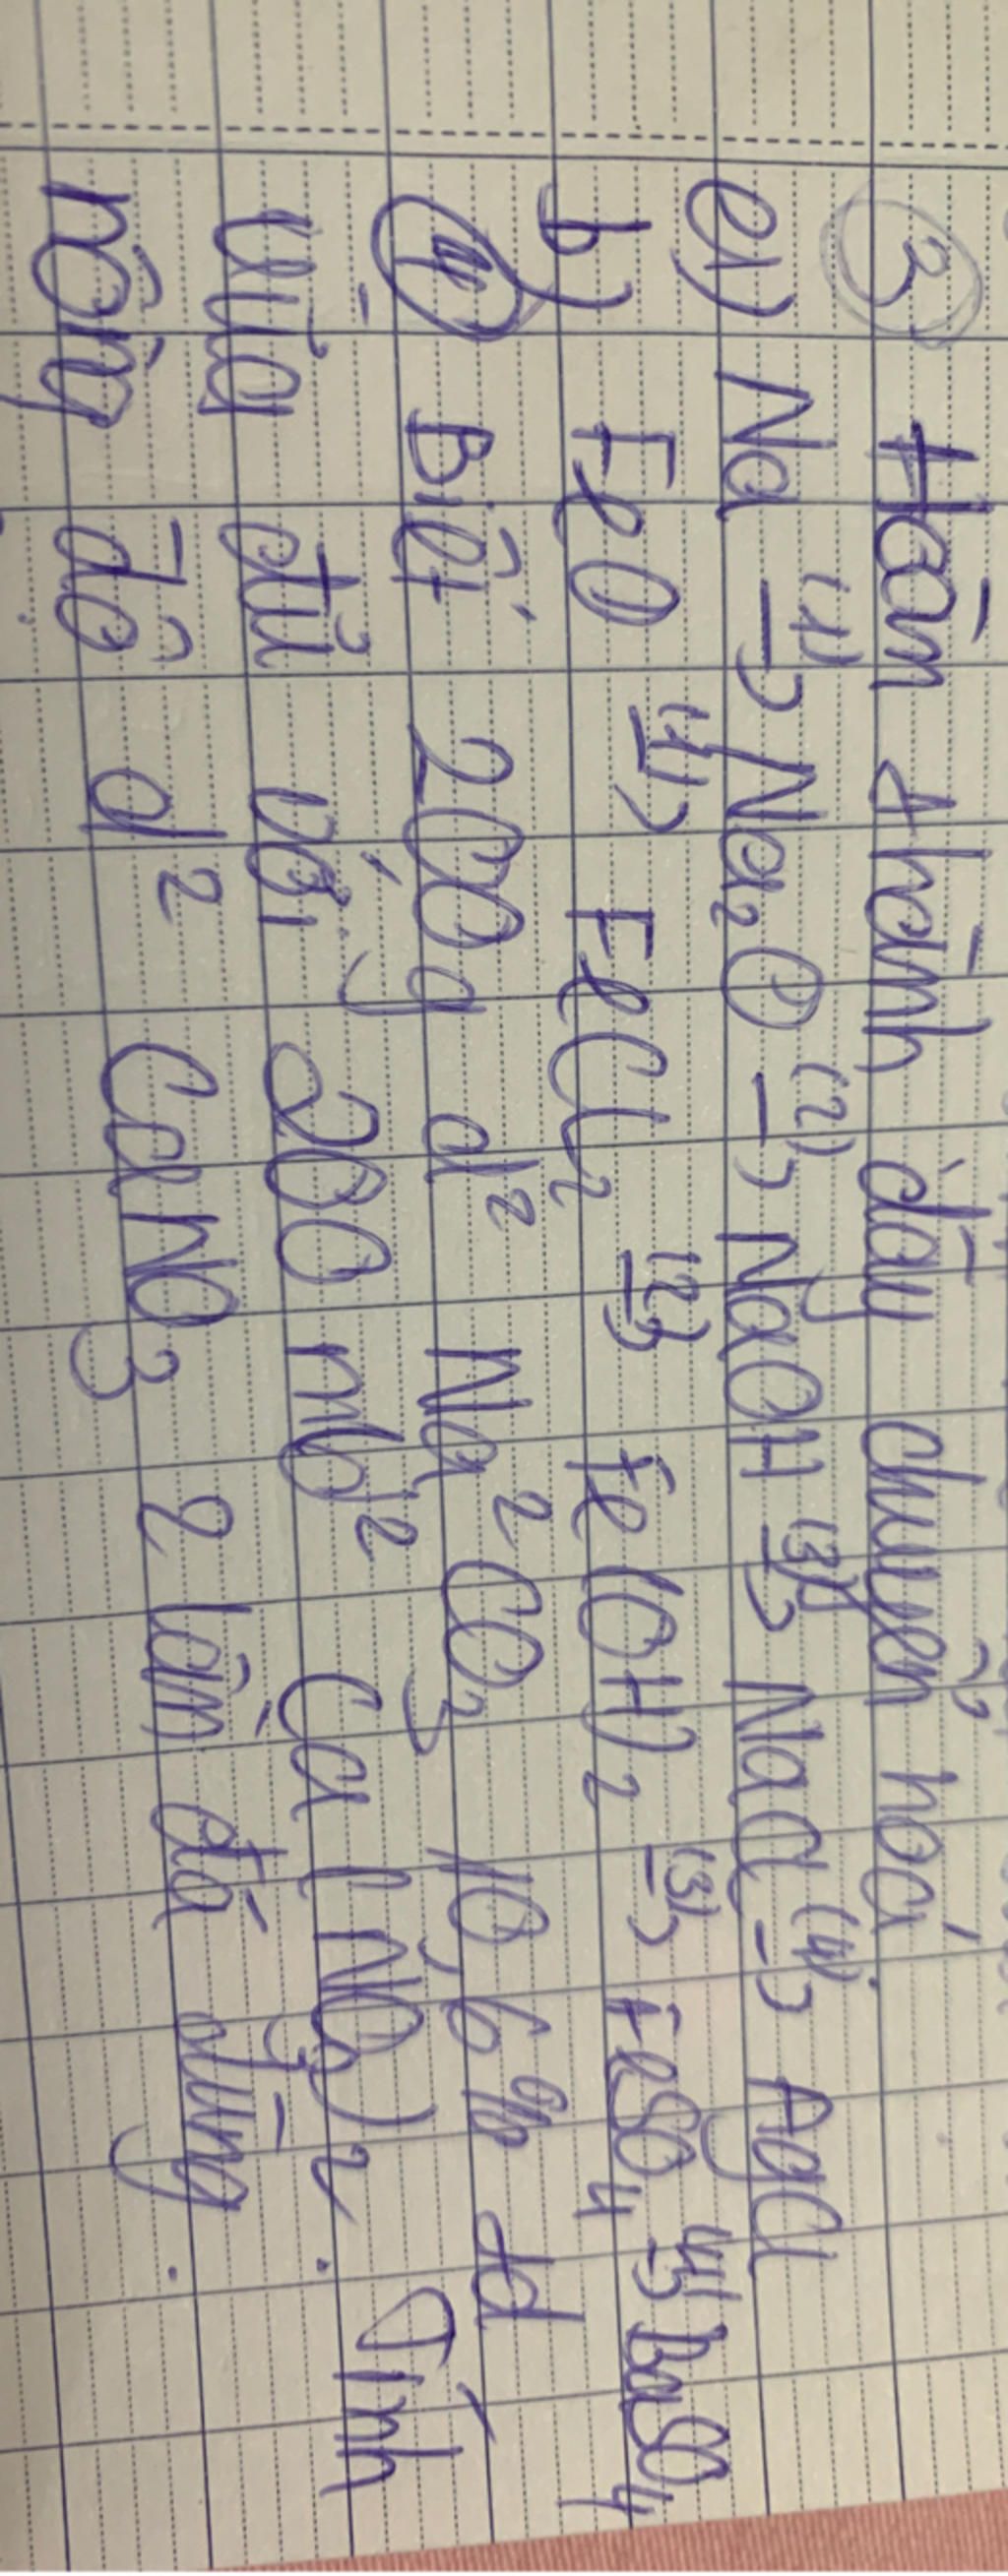 ③ Hoàn thành dãy chuyển hoá
a) Na (1)→ Na₂O (2)→ NaOH (3)→ NaCl (4)→ AgCl
b) FeO (1)→ FeCl₂ (2)→ Fe(OH)₂ (3)→ FeSO₄ (4)→ BaSO₄
④ Biết 200g d² Na₂CO₃ 10,6% td
vừa đủ với 200 ml d² Ca(NO₃)₂. Tính
nồng độ d² CaNO₃ 2 lần đã dùng.